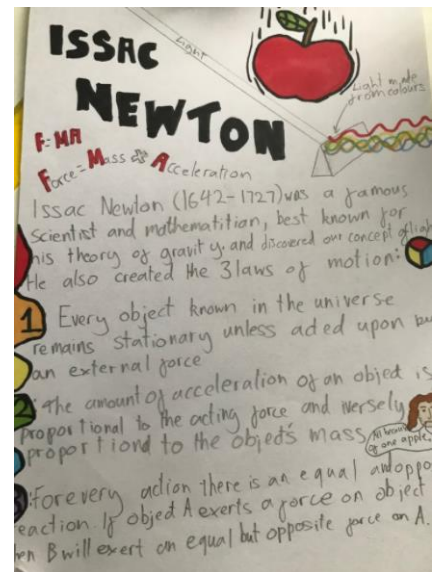 ISSAC
Light
NEWTON
Light made
from colours
F=MA
Force = Mass Acceleration
Issac Newton (1642-1727) was a famous
scientist and mathematition, best known for
his theory of gravity. and discovered our concept of light
He also created the 3 laws of motion:
1 Every object known in the universe
remains stationary unless acted upon
an external force
2 The amount of acceleration of an object is
proportional to the acting force and iversely
proportional to the object's mass
All because
of one apple
3: For every action there is an equal and oppo
eaction. If object A exerts a force on object
en B will exert an equal but opposite force on A.